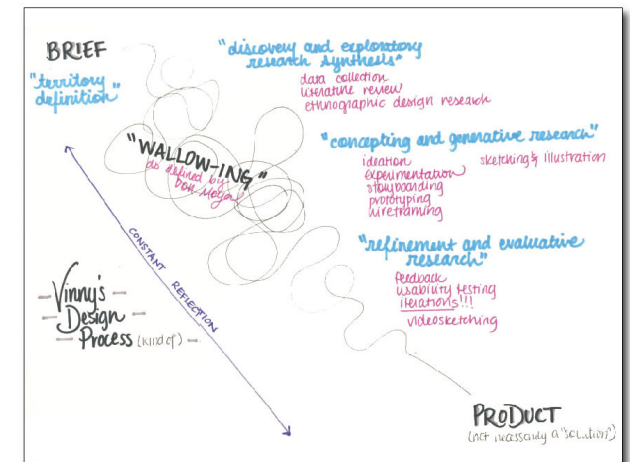 BRIEF
"territory
definition"
"discovery and exploratory
research synthesis"
data collection
literature review
ethnographic design research
"WALLOW-ING"
as defined by
Don Moyer
"concepting and generative research"
ideation
sketching & illustration
experimentation
storyboarding
prototyping
wireframing
"refinement and evaluative
research"
feedback
usability testing
iterations!!!
videosketching
CONSTANT REFLECTION
Vinny's
Design
Process (kind of)
PRODUCT
(not necessarily a "solution")